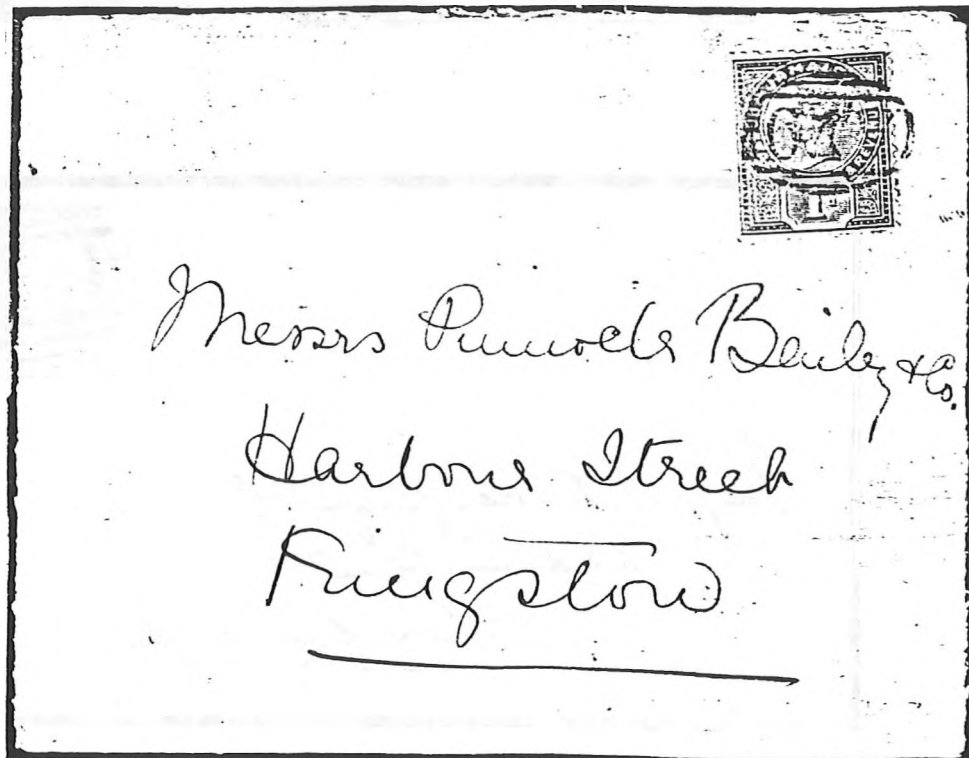 1D
Messrs Pinnock Bailey & Co.
Harbour Street
Kingston